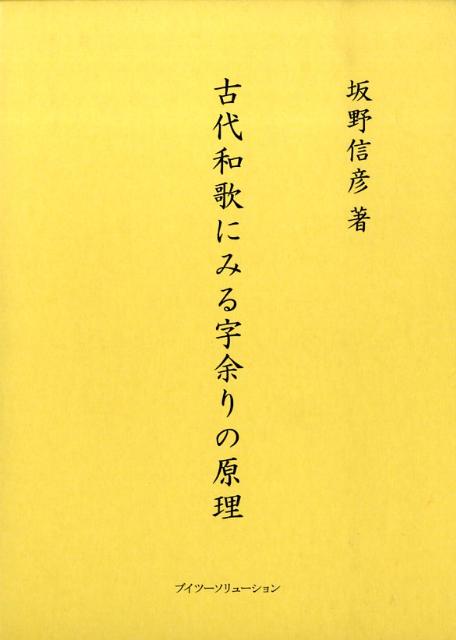 坂野信彦 著
古代和歌にみる字余りの原理
ブイツーソリューション